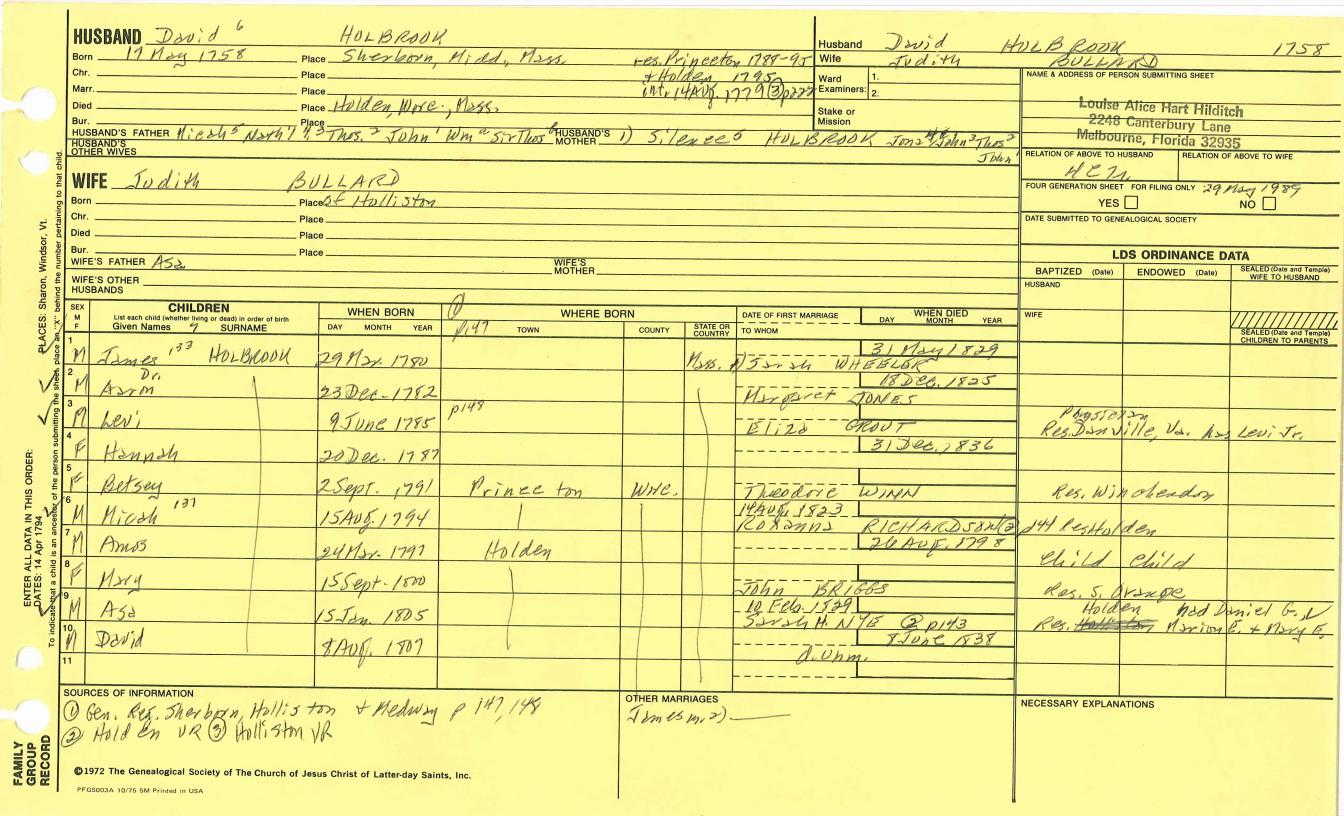 HUSBAND David 6 HOLBROOK
Born 17 May 1758 Place Sherborn, Midd., Mass. res. Princeton 1789-95
Chr. Place & Holden, 1795
Marr. Place int. 14 Aug. 1779 (3) p222
Died Place Holden, Worc., Mass.
Bur. Place
HUSBAND'S FATHER Micah 5 Nath'l 4,3 Thos. 2 John 1 Wm a Sir Thos b HUSBAND'S MOTHER 1) Silence 5 HOLBROOK John 3 Thos 2
John 1
HUSBAND'S OTHER WIVES
Husband David HOLBROOK 1758
Wife Judith BULLARD
Ward Examiners: 1.
2.
Stake or Mission
NAME & ADDRESS OF PERSON SUBMITTING SHEET
Louise Alice Hart Hilditch
2248 Canterbury Lane
Melbourne, Florida 32935
RELATION OF ABOVE TO HUSBAND RELATION OF ABOVE TO WIFE
FOUR GENERATION SHEET FOR FILING ONLY 29 May 1989
YES NO
DATE SUBMITTED TO GENEALOGICAL SOCIETY
WIFE Judith BULLARD
Born Place of Holliston
Chr. Place
Died Place
Bur. Place
WIFE'S FATHER Asa WIFE'S MOTHER
WIFE'S OTHER HUSBANDS
LDS ORDINANCE DATA
BAPTIZED (Date) ENDOWED (Date) SEALED (Date and Temple) WIFE TO HUSBAND
HUSBAND
WIFE
SEALED (Date and Temple) CHILDREN TO PARENTS
SEX M F CHILDREN WHEN BORN (1) WHERE BORN DATE OF FIRST MARRIAGE WHEN DIED
List each child (whether living or dead) in order of birth
Given Names 7 SURNAME DAY MONTH YEAR p147 TOWN COUNTY STATE OR COUNTRY TO WHOM DAY MONTH YEAR
1 M James 133 HOLBROOK 29 Mar. 1780 Mass. Sarah WHEELER 31 May 1829
2 M Dr. Aaron 23 Dec. 1782 Margaret JONES 18 Dec. 1825
3 M Levi 9 June 1785 p148 Eliza GROUT Physician Res. Danville, Va. has Levi Jr.
4 F Hannah 20 Dec. 1787 31 Dec. 1836
5 F Betsey 2 Sept. 1791 Princeton Theodore WINN Res. Winchendon
6 M Micah 137 15 Aug. 1794 14 Aug. 1823 Roxanna RICHARDSON (2) p144 Res Holden
7 M Amos 24 Mar. 1797 Holden 26 Aug. 1798 Child Child
8 F Mary 15 Sept. 1800 John BRIGGS Res. S. Orange
9 M Asa 15 Jan. 1805 10 Feb. 1829 Sarah H. NYE (2) p143 Res. Holliston Holden had Daniel G. Marion E. & Mary E.
10 M David 8 Aug. 1807 8 June 1838 d. unm.
11
SOURCES OF INFORMATION
(1) Gen. Reg. Sherborn, Holliston & Medway p 147, 148
(2) Holden VR (3) Holliston VR
OTHER MARRIAGES
James m. 2)
NECESSARY EXPLANATIONS
©1972 The Genealogical Society of The Church of Jesus Christ of Latter-day Saints, Inc.
PFGS003A 10/75 5M Printed in USA
FAMILY GROUP RECORD
ENTER ALL DATA IN THIS ORDER:
DATES: 14 Apr 1794
PLACES: Sharon, Windsor, Vt.
To indicate that a child is an ancestor of the person submitting the sheet, place an "X" behind the number pertaining to that child.